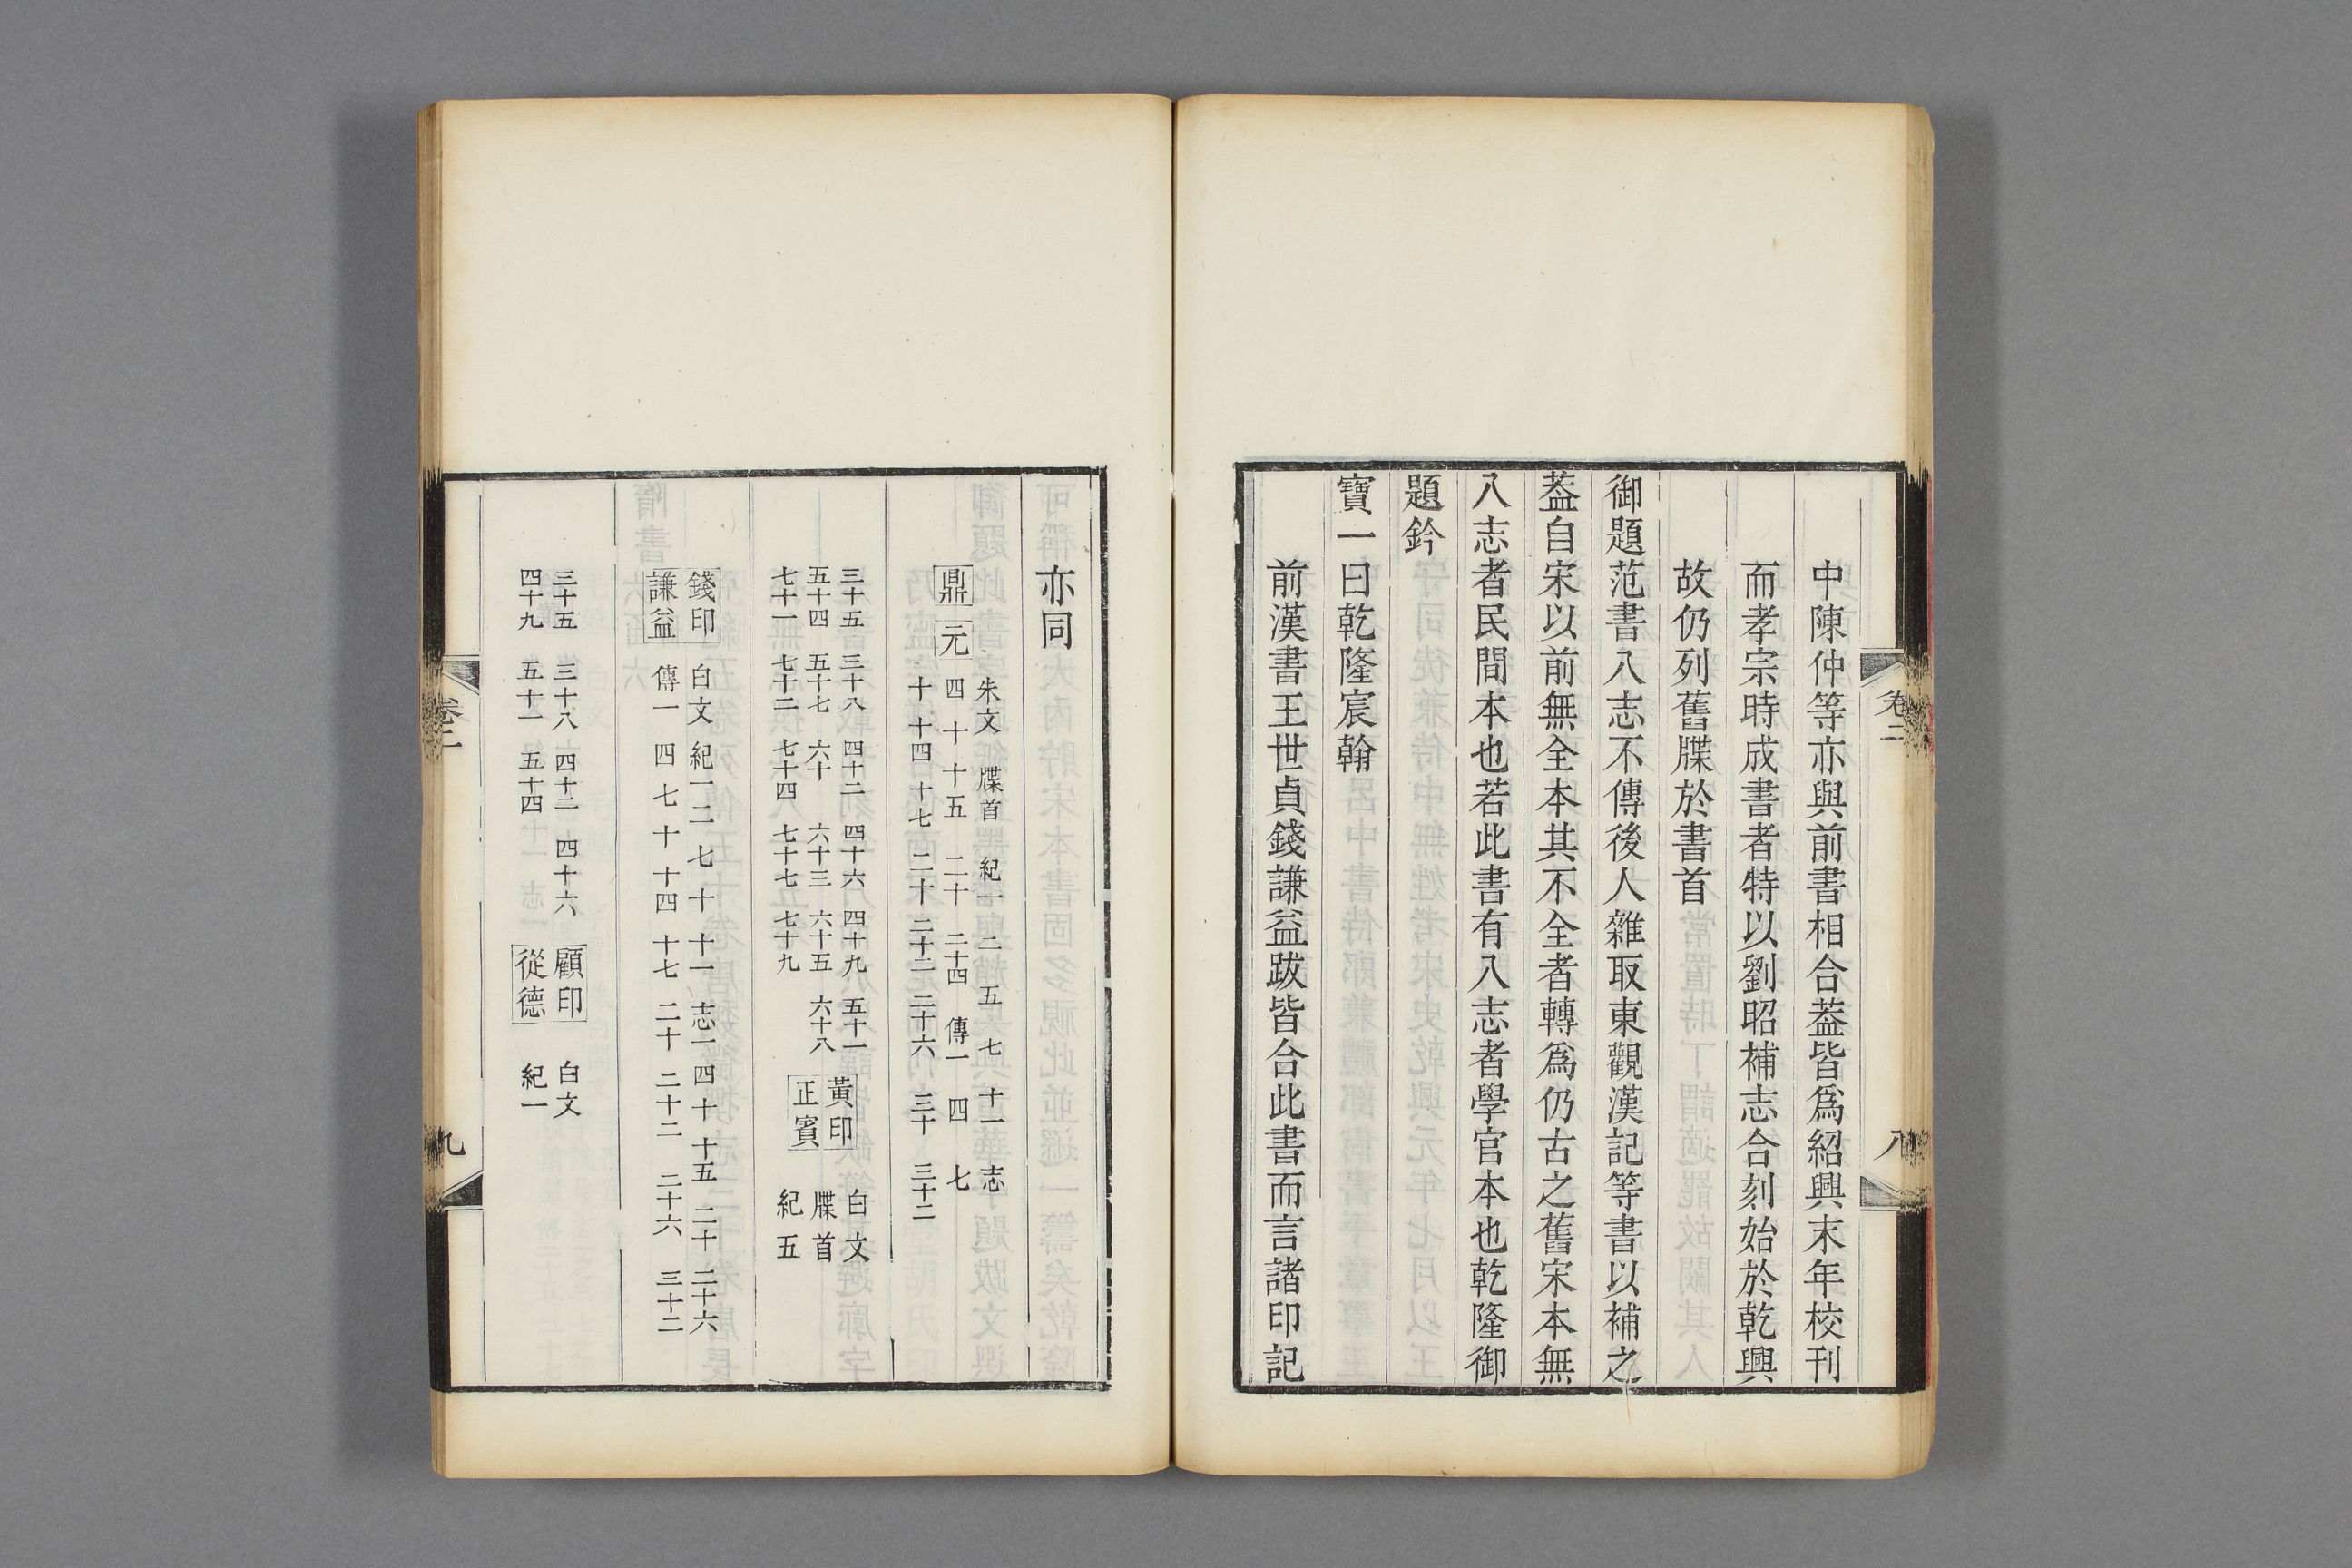 卷二
八
中陳仲等亦與前書相合葢皆爲紹興末年校刊
而孝宗時成書者特以劉昭補志合刻始於乾興
故仍列舊牒於書首
御題范書八志不傳後人雜取東觀漢記等書以補之
葢自宋以前無全本其不全者轉爲仍古之舊宋本無
八志者民間本也若此書有八志者學官本也乾隆御
題鈐
寶一曰乾隆宸翰
前漢書王世貞錢謙益跋皆合此書而言諸印記
亦同
鼎 元
朱文 牒首 紀一 二 五 七 十一 志
四 十 十五 二十 二十四 傳一 四 七
十 十四 十七 二十 二十二 二十六 三十 三十二
三十五 三十八 四十二 四十六 四十九 五十一
五十四 五十七 六十 六十三 六十五 六十八
七十一 七十二 七十四 七十七 七十九
黃印
正賓
白文
牒首
紀五
錢印
謙益
白文 紀一 二 七 十 十一 志一 四 十 十五 二十 二十六
傳一 四 七 十 十四 十七 二十 二十二 二十六 三十二
三十五 三十八 四十二 四十六
四十九 五十一 五十四
顧印
從德
白文
紀一
卷二
九